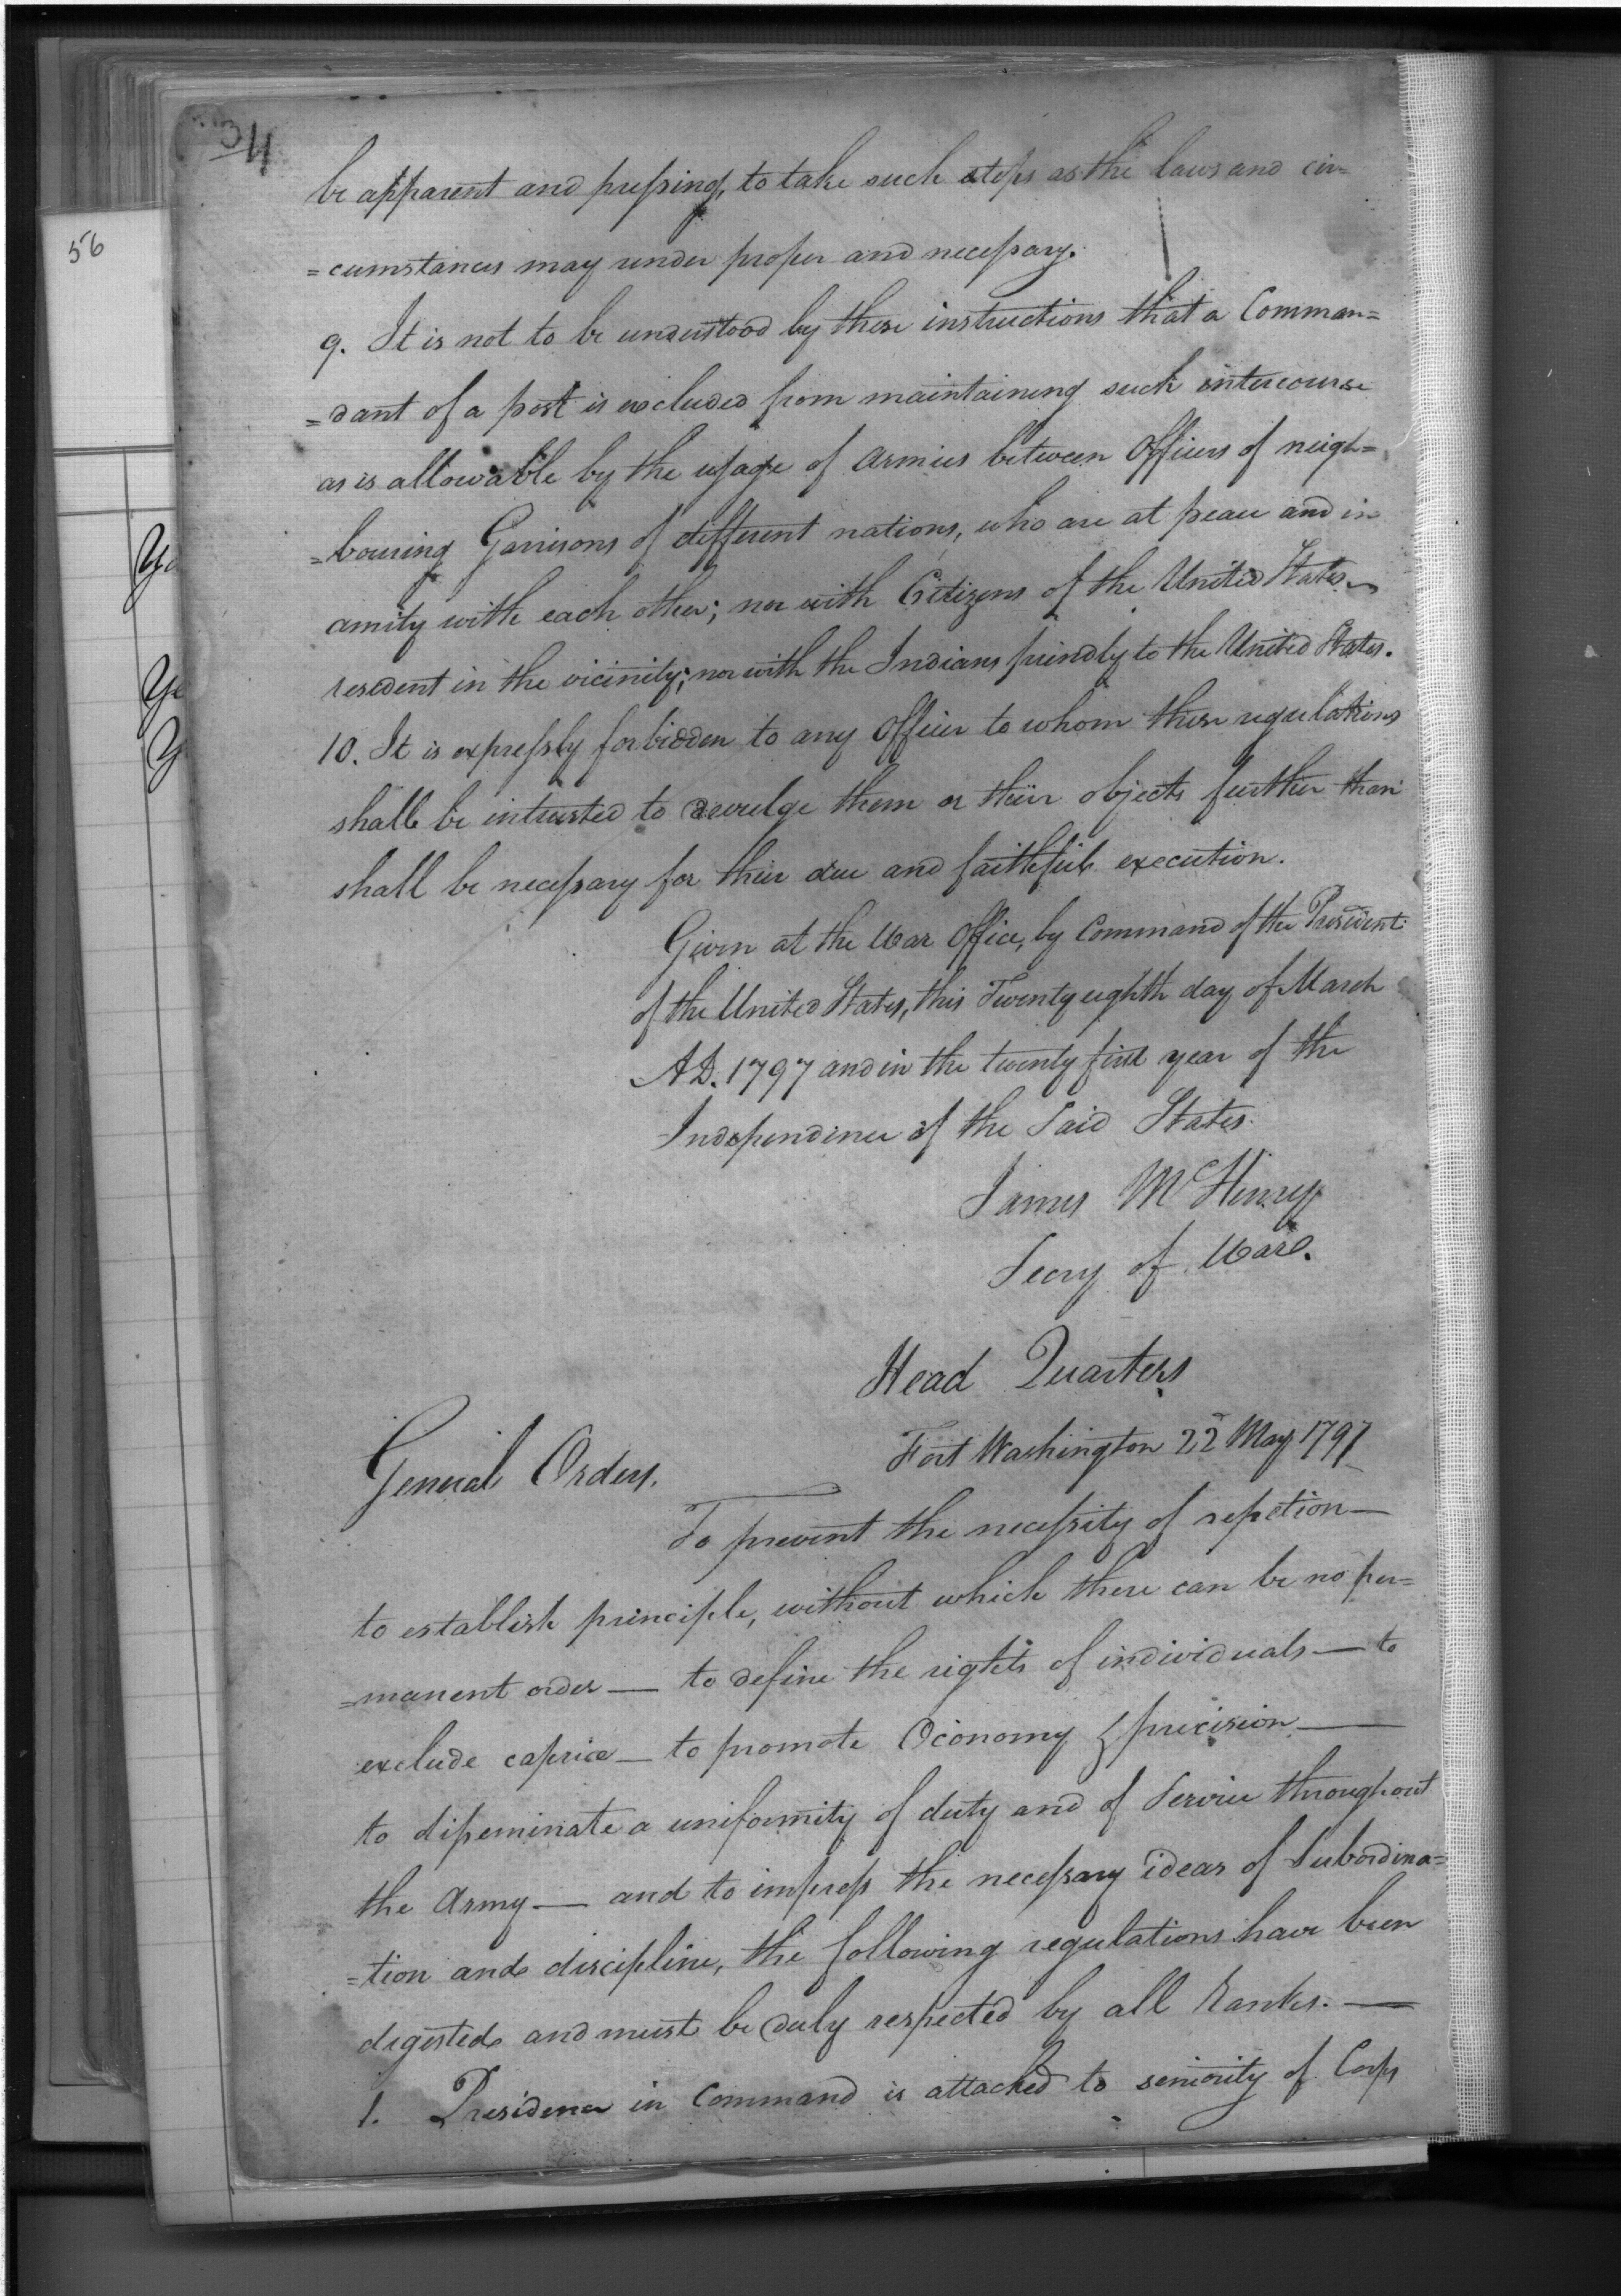 34
be apparent and pressing, to take such steps as the laws and cir=
=cumstances may render proper and necessary.
9. It is not to be understood by these instructions that a Comman=
=dant of a post is excluded from maintaining such intercourse
as is allowable by the usage of Armies between Officers of neigh=
=bouring Garrisons of different nations, who are at peace and in
amity with each other; nor with Citizens of the United States
resident in the vicinity; nor with the Indians friendly to the United States.
10. It is expressly forbidden to any Officer to whom these regulations
shall be intrusted to devulge them or their objects further than
shall be necessary for their due and faithful execution.
Given at the War Office, by Command of the President
of the United States, this Twenty eighth day of March
AD. 1797 and in the twenty first year of the
Independence of the Said States.
James McHenry
Secry of War.
Head Quarters
Fort Washington 22d May 1797
General Orders.
To prevent the necessity of repetion—
to establish principle, without which there can be no per=
=manent order — to define the rights of individuals — to
exclude caprice — to promote Oconomy & precision —
to disseminate a uniformity of duty and of Service throughout
the Army — and to impress the necessary ideas of Subordina=
=tion and discipline, the following regulations have been
digested and must be duly respected by all Ranks. —
1. Presidence in Command is attached to seniority of Corps
56
Ye
Ye
Y